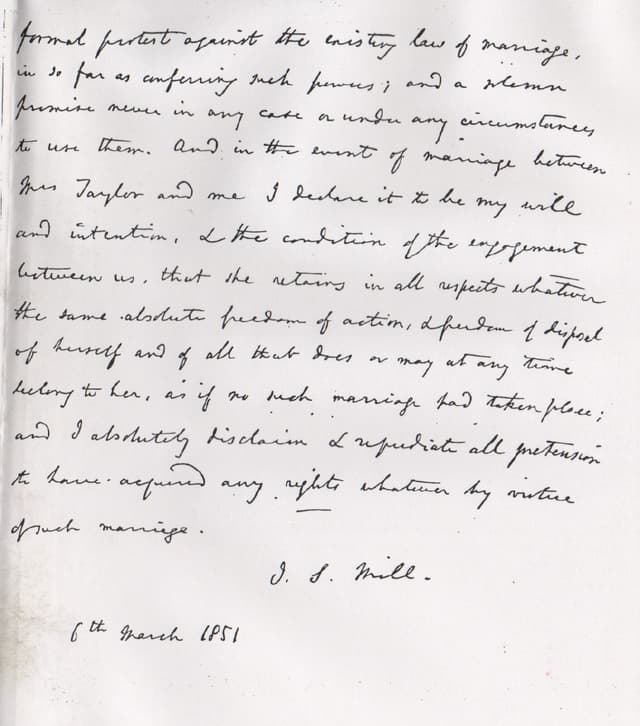 formal protest against the existing law of marriage,
in so far as conferring such powers; and a solemn
promise never in any case or under any circumstances
to use them. And in the event of marriage between
Mrs Taylor and me I declare it to be my will
and intention, & the condition of the engagement
between us, that she retains in all respects whatever
the same absolute freedom of action, & freedom of disposal
of herself and of all that does or may at any time
belong to her, as if no such marriage had taken place;
and I absolutely disclaim & repudiate all pretension
to have acquired any rights whatever by virtue
of such marriage.
J. S. Mill.
6th March 1851